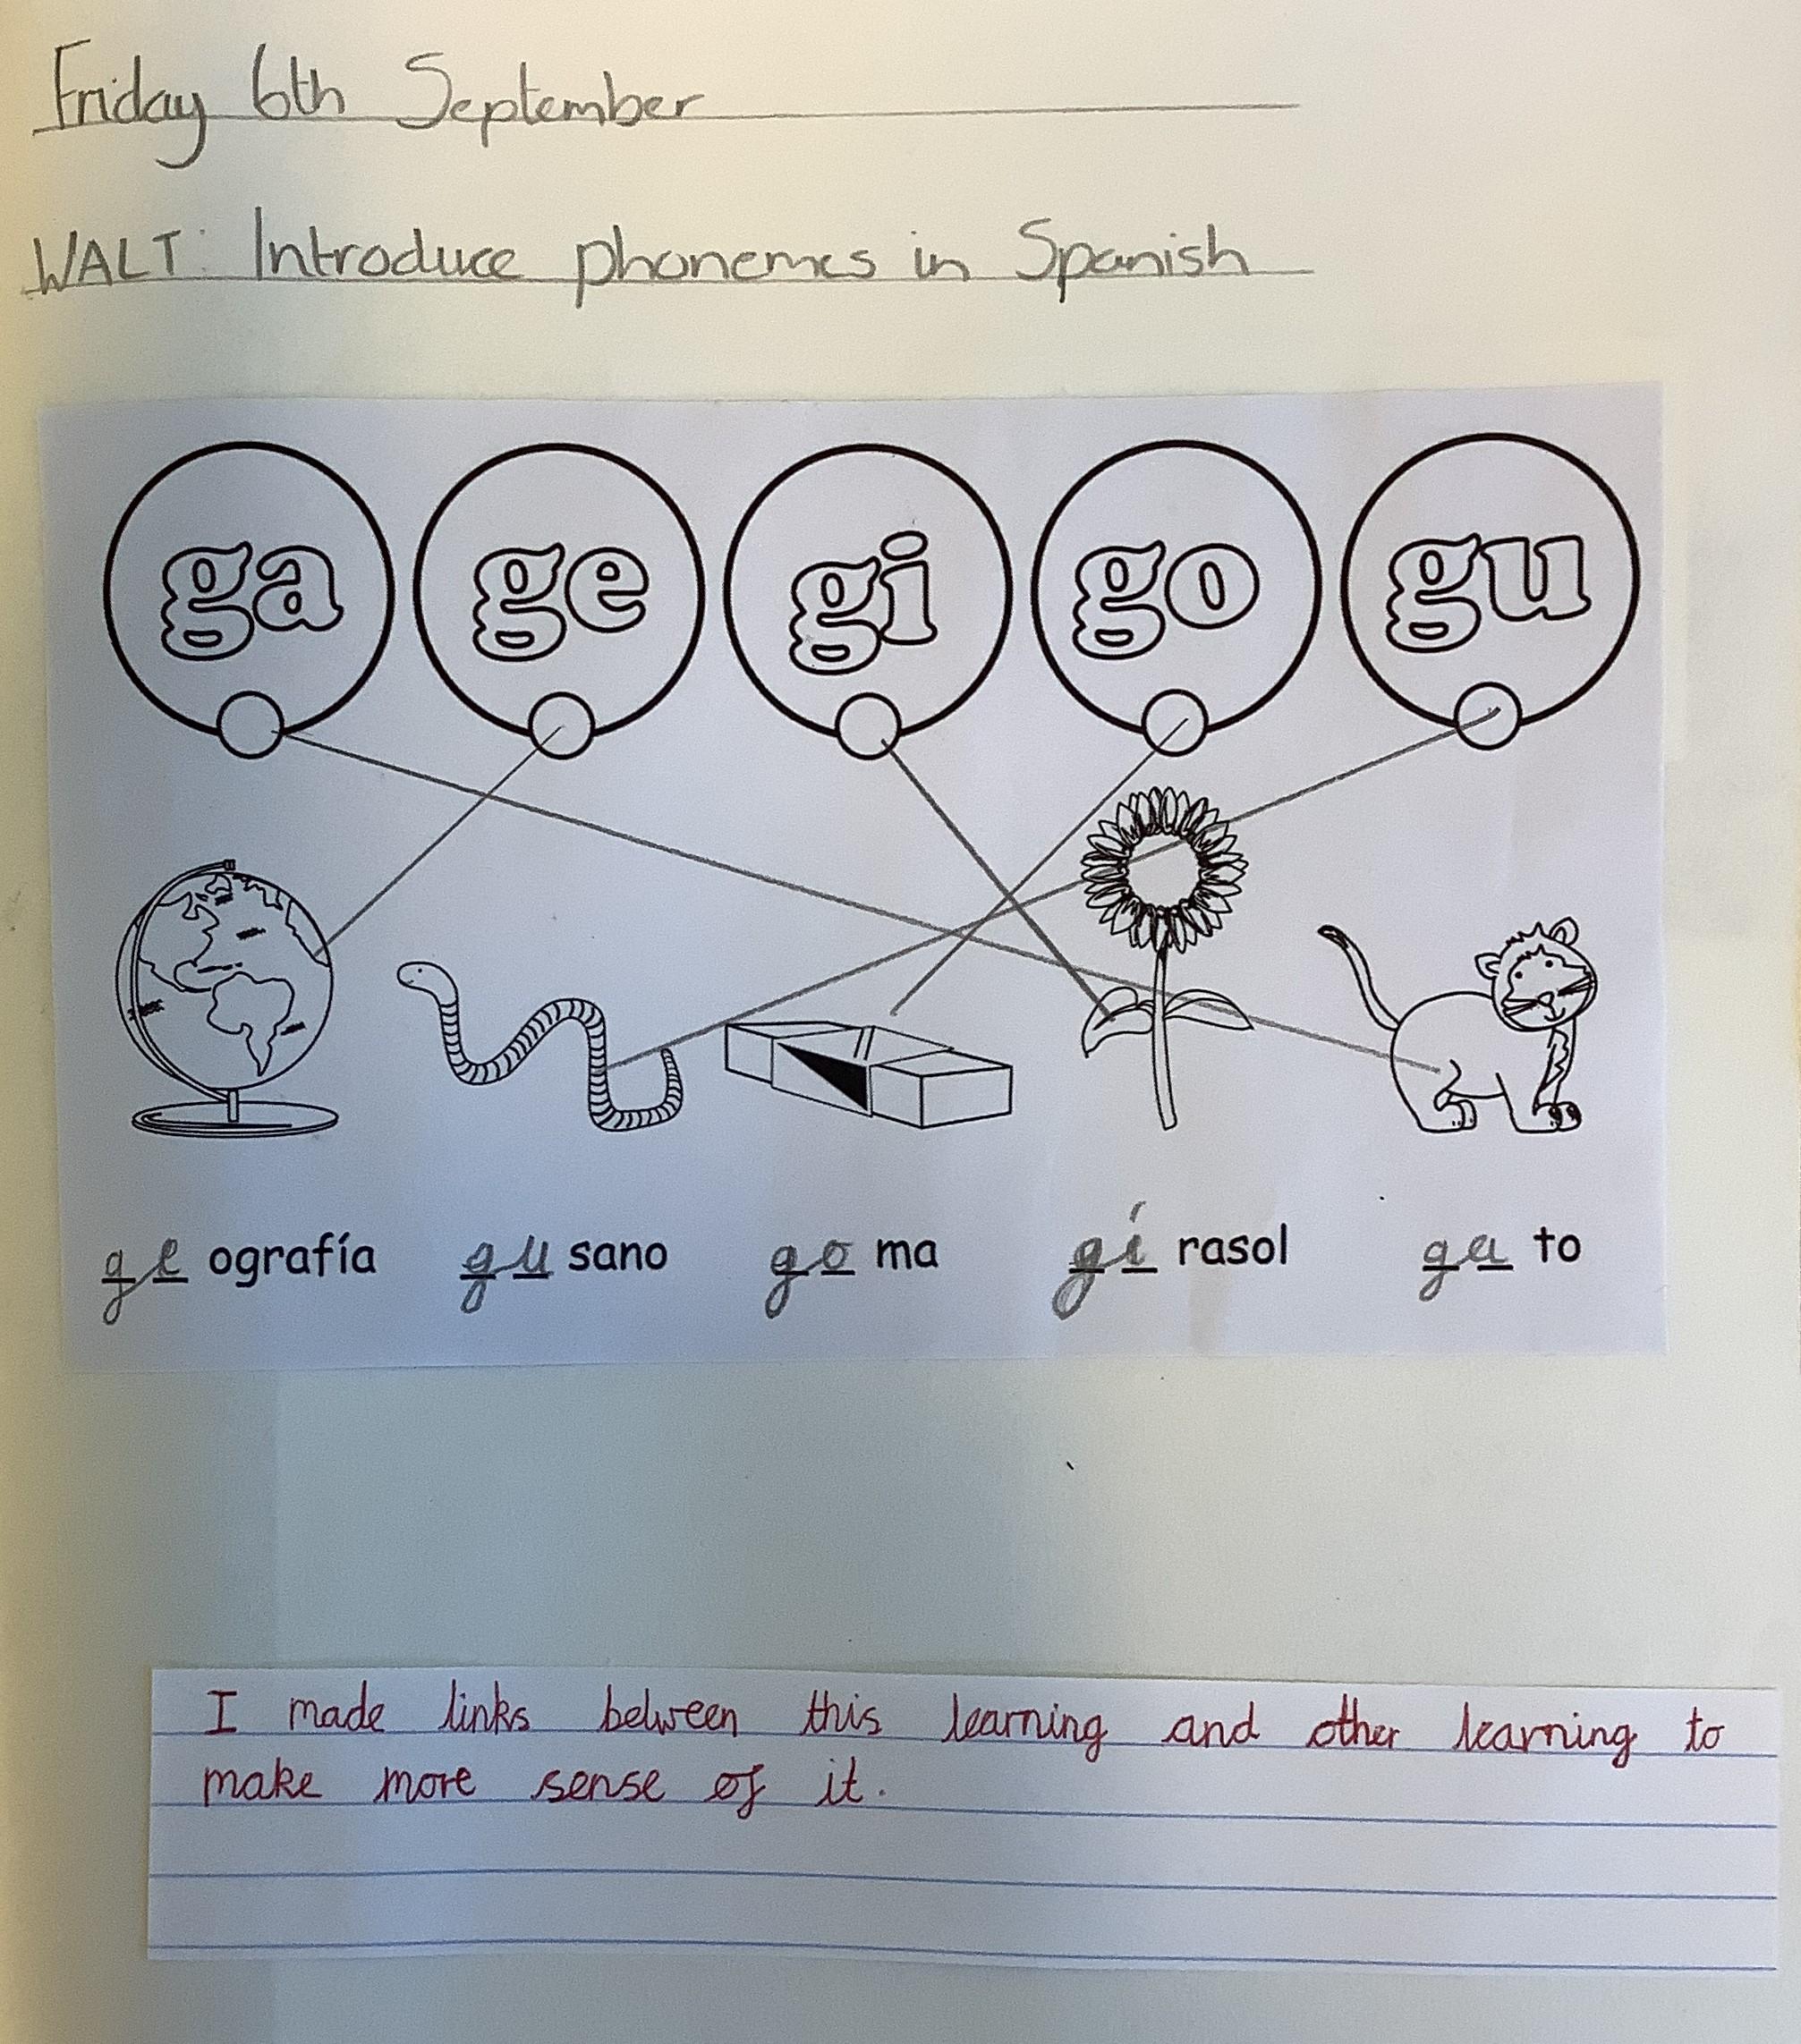 Friday 6th September
WALT: Introduce phonemes in Spanish
ga ge gi go gu
ge ografía gu sano go ma gi rasol ga to
I made links between this learning and other learning to
make more sense of it.